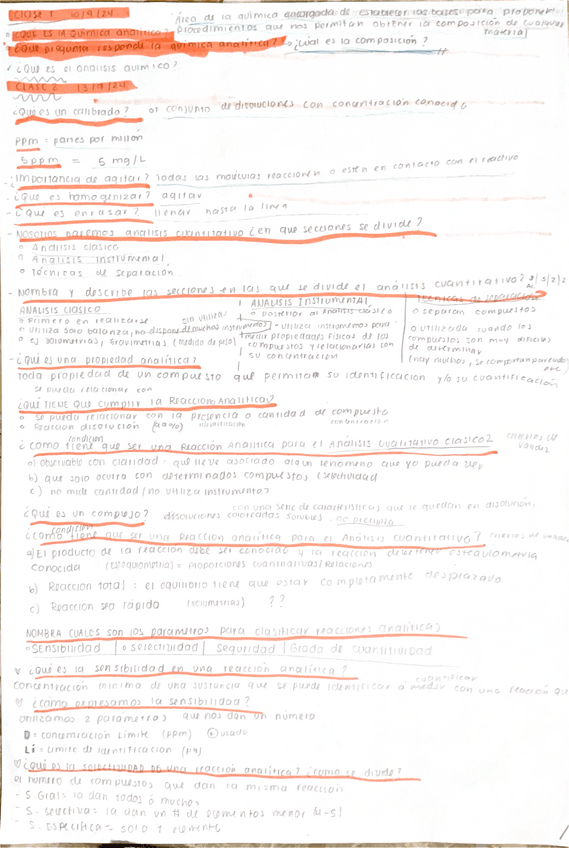 CLASE 1 10/9/24
¿Qué es la química analítica? Área de la química encargada de establecer las bases para proponer
procedimientos que nos permitan obtener la composición de cualquier
material
¿Qué pregunta responde la química analítica? ¿Cuál es la composición?
¿Qué es el análisis químico?
CLASE 2 13/9/24
¿Qué es un calibrado? al conjunto de disoluciones con concentración conocida
ppm = partes por millón
5 ppm = 5 mg/L
¿Importancia de agitar? todas las moléculas reaccionen o estén en contacto con el reactivo
- ¿Qué es homogenizar? agitar
- ¿Qué es enrasar? llenar hasta la línea
- Nosotros haremos análisis cuantitativo ¿en que secciones se divide?
o Análisis clásico
o Análisis instrumental
o Técnicas de separación
- Nombra y describe las secciones en las que se divide el análisis cuantitativo?
ANALISIS CLASICO
o Primero en realizarse
o Utiliza solo balanza, no dispone de muchos instrumentos
o ej volumetrías, gravimetrías (medida de peso)
ANALISIS Instrumental
o Posterior al análisis clásico
- utiliza instrumentos para
medir propiedades físicas de los
compuestos y relacionarlas con
su concentración
Técnicas de separación
o separan compuestos
o utilizada cuando los
compuestos son muy difíciles
de determinar
(hay muchos, se comportan parecido,
etc
- ¿Qué es una propiedad analítica?
Toda propiedad de un compuesto que permita su identificación y/o su cuantificación
se pueda relacionar con
¿QUÉ TIENE QUE CUMPLIR LA REACCIÓN ANALÍTICA?
o Se pueda relacionar con la presencia o cantidad de compuesto
o Reacción disolución
¿Como tiene que ser una Reacción Analítica para el Análisis Cualitativo Clásico?
condición
a) observable con claridad: que lleve asociado algún fenomeno que yo pueda ver
b) que solo ocurra con determinados compuestos (selectividad
c) no mide cantidad / no utiliza instrumentos
¿Qué es un complejo? con una serie de características que se quedan en disolución.
disoluciones coloreadas solubles. no precipita
condición
¿como tiene que ser una reacción analítica para el Análisis cuantitativo?
a) El producto de la reacción debe ser conocido y la reacción debe tener estequiometría
conocida (estequiometría = proporciones cuantitativas/relaciones
b) Reacción total: el equilibrio tiene que estar completamente desplazado
c) Reacción sea rápida (volumetrías) ??
NOMBRA CUALES SON LOS PARAMETROS PARA CLASIFICAR REACCIONES ANALÍTICAS
o Sensibilidad | o selectividad | Seguridad | Grado de cuantitividad
¿Qué es la sensibilidad en una reacción analítica?
cuantificar
Concentración minima de una sustancia que se puede identificar o medir con una reacción qu
¿como expresamos la sensibilidad?
Utilizamos 2 parámetros que nos dan un número
D = concentración Límite (ppm) usado
Li = Límite de identificación (µg)
¿Qué es la selectividad DE UNA reacción analítica? ¿como se divide?
el número de compuestos que dan la misma reacción
- S. Gral = la dan todos ó muchos
- S. selectiva = la dan un # de elementos menor
- S. Específica = solo 1 elemento
1